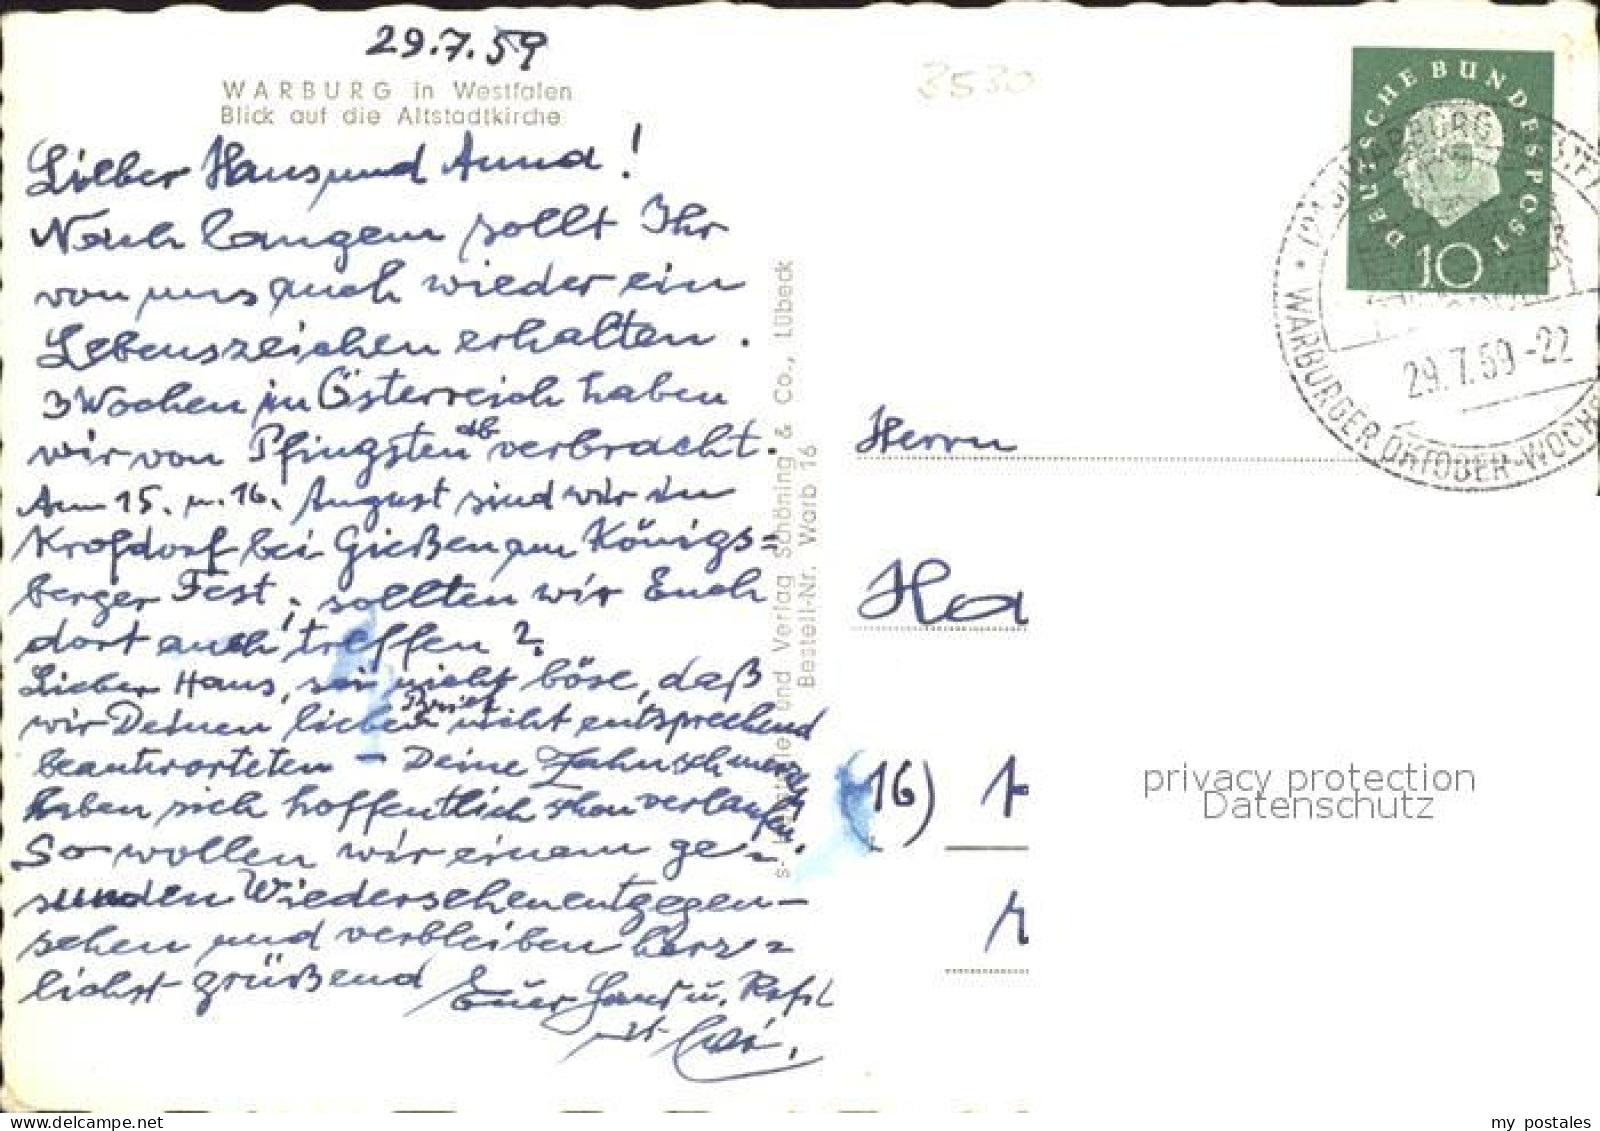 29.7.59
WARBURG in Westfalen
Blick auf die Altstadtkirche
Lieber Hans und Anna!
Nach langem sollt Ihr
von uns auch wieder ein
Lebenszeichen erhalten.
3 Wochen in Österreich haben
wir von Pfingsten ab verbracht.
Am 15. u. 16. August sind wir in
Krofdorf bei Gießen am Königs=
berger Fest; sollten wir Euch
dort auch treffen?
Lieber Hans, sei nicht böse, daß
wir Deinen lieben Brief nicht entsprechend
beantworteten – Deine Zahnschmerzen
haben sich hoffentlich schon verlaufen.
So wollen wir einem ge=
sunden Wiedersehen entgegen-
sehen und verbleiben herz=
lichst grüßend
Euer u.
und Verlag Schöning & Co., Lübeck
Bestell-Nr. Warb 16
3530
DEUTSCHE BUNDESPOST
10
WARBURG
29.7.59-22
WARBURGER OKTOBER-WOCHE
Herrn
Ha
(16)
privacy protection
Datenschutz
my postales